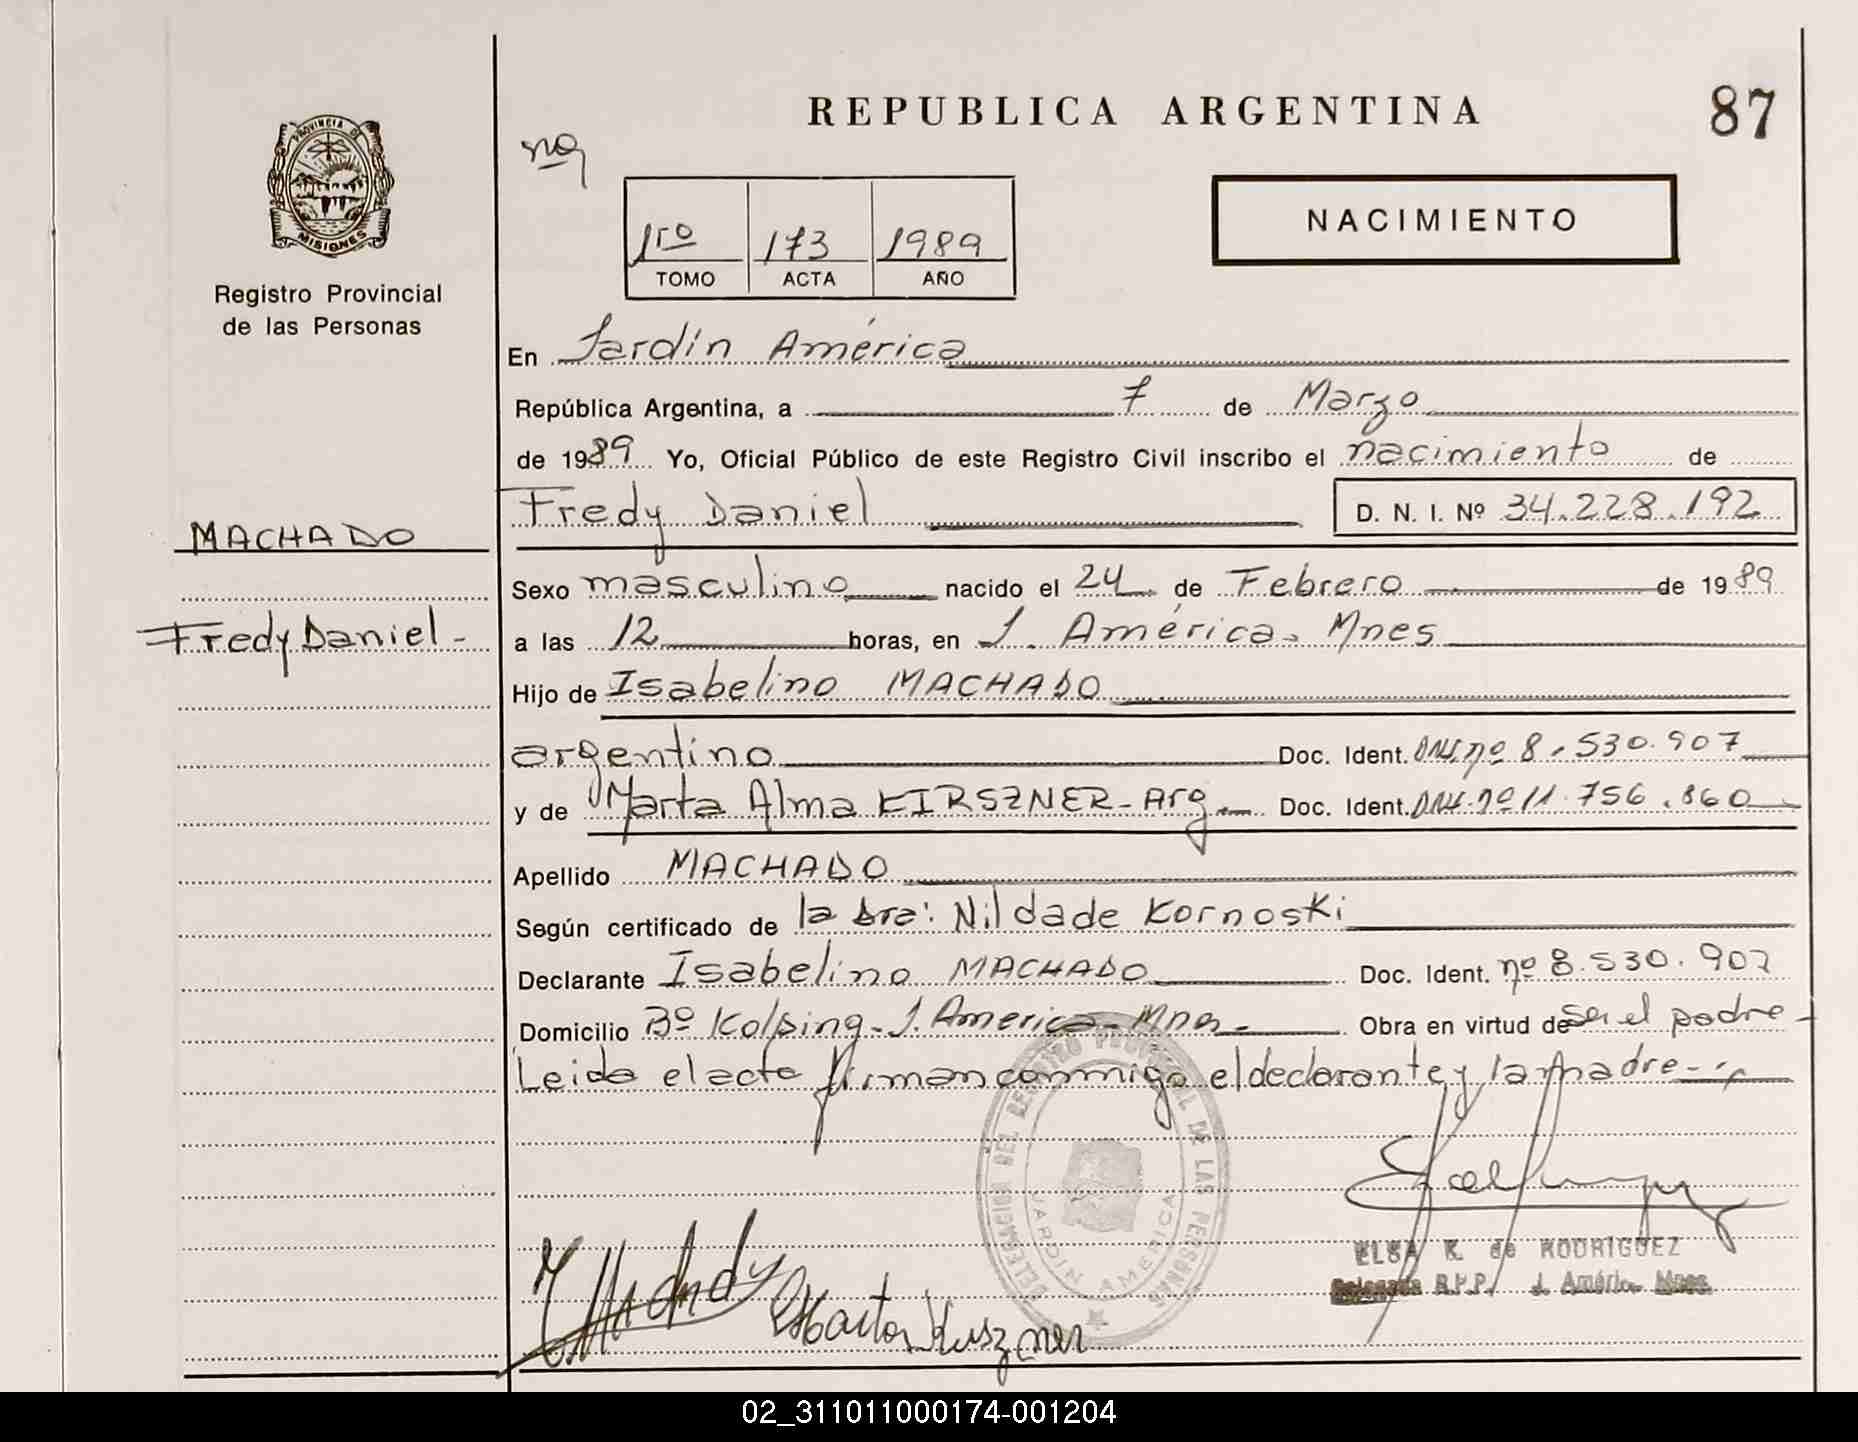 REPUBLICA ARGENTINA
87
nº
PROVINCIA DE
MISIONES
NACIMIENTO
1ro 173 1989
TOMO ACTA AÑO
Registro Provincial
de las Personas
En Jardín América
República Argentina, a 7 de Marzo
de 1989 Yo, Oficial Público de este Registro Civil inscribo el nacimiento de
Fredy Daniel D. N. I. Nº 34.228.192
MACHADO
Sexo masculino nacido el 24 de Febrero de 1989
Fredy Daniel -
a las 12 horas, en J. América - Mnes
Hijo de Isabelino MACHADO
argentino Doc. Ident. DNI. nº 8.530.907
y de Marta Alma KIRSZNER - Arg. - Doc. Ident. DNI. nº 11.756.860
Apellido MACHADO
Según certificado de la Dra: Nilda de Kornoski
Declarante Isabelino MACHADO Doc. Ident. nº 8.530.907
Domicilio Bº Kolping - J. America - Mnes - Obra en virtud de ser el padre -
Leida el acta firman conmigo el declarante y la madre -
DELEGACION DEL REGISTRO PROVINCIAL DE LAS PERSONAS
JARDIN AMERICA
ELSA K. de RODRIGUEZ
Delegada R.P.P. J. América Mnes.
Marta Kirszner
02_311011000174-001204